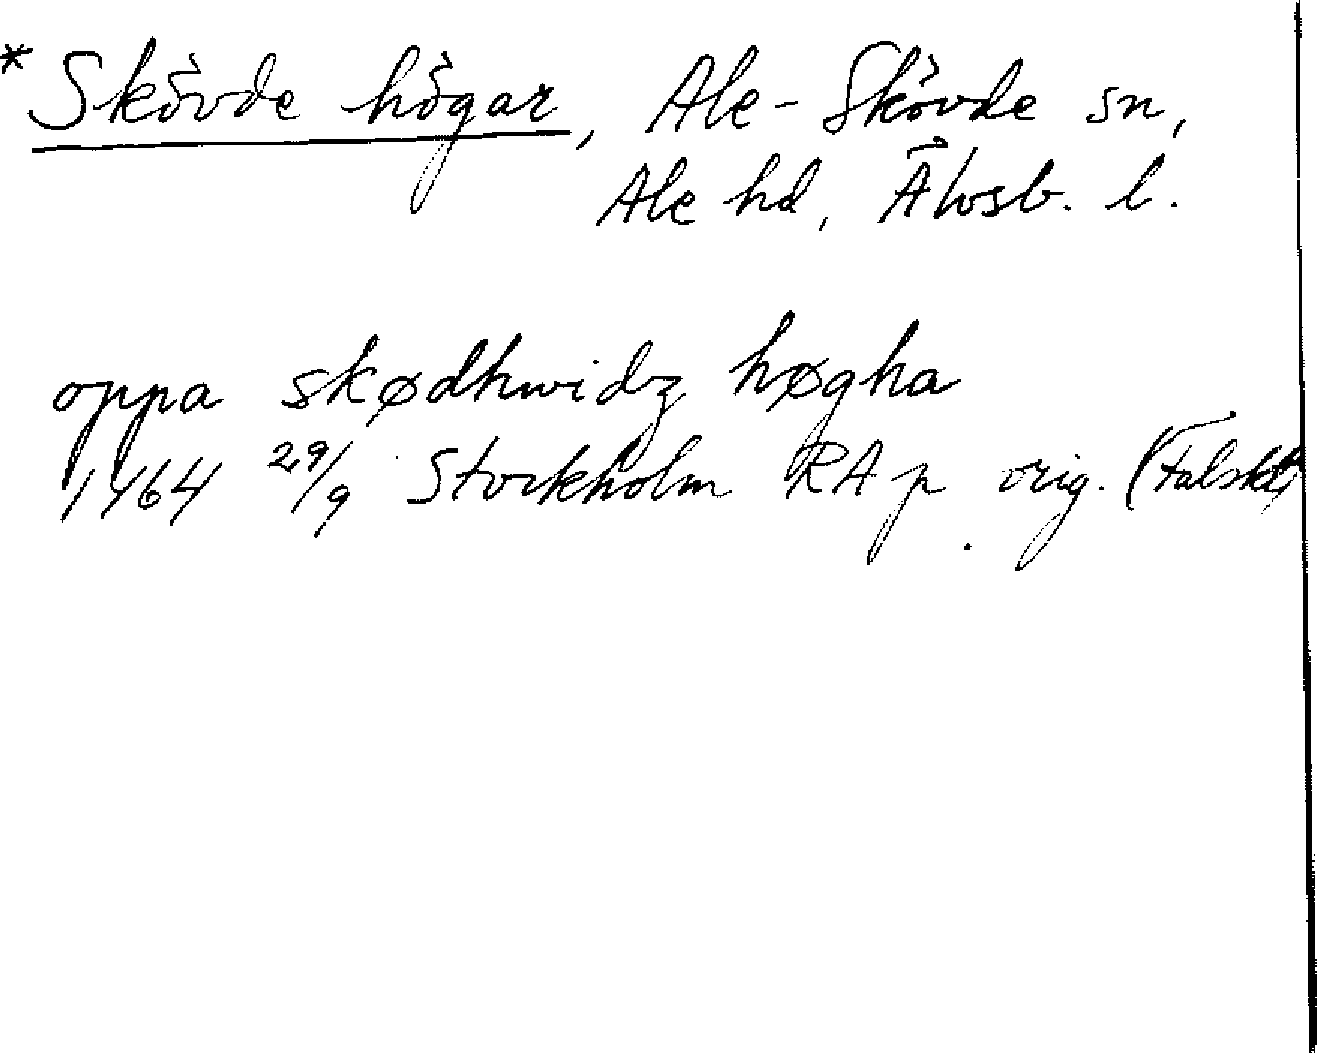 * Skövde högar, Ale-Skövde sn,
Ale hd, Älvsb. l.
oppa skødhwidz høgha
1464 29/9 Stockholm RA p orig. (Falskt)